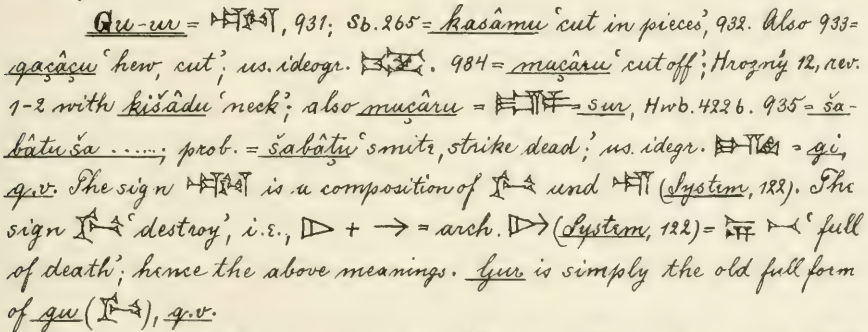 Gu-ur = , 931; Sb. 265 = kasâmu ‘cut in pieces’, 932. Also 933=
qaçâçu ‘hew, cut’; us. ideogr. . 984 = muçâru ‘cut off’; Hrozný 12, rev.
1-2 with kišâdu ‘neck’; also muçâru = = sur, Hwb. 422 b. 935 = ša-
bâtu ša ......; prob. = šabâtu ‘smite, strike dead’; us. idegr. = gi,
q.v. The sign is a composition of und (System, 122). The
sign ‘destroy’, i.e., + = arch. (System, 122) = ‘full
of death’; hence the above meanings. Gur is simply the old full form
of gu ( ), q.v.